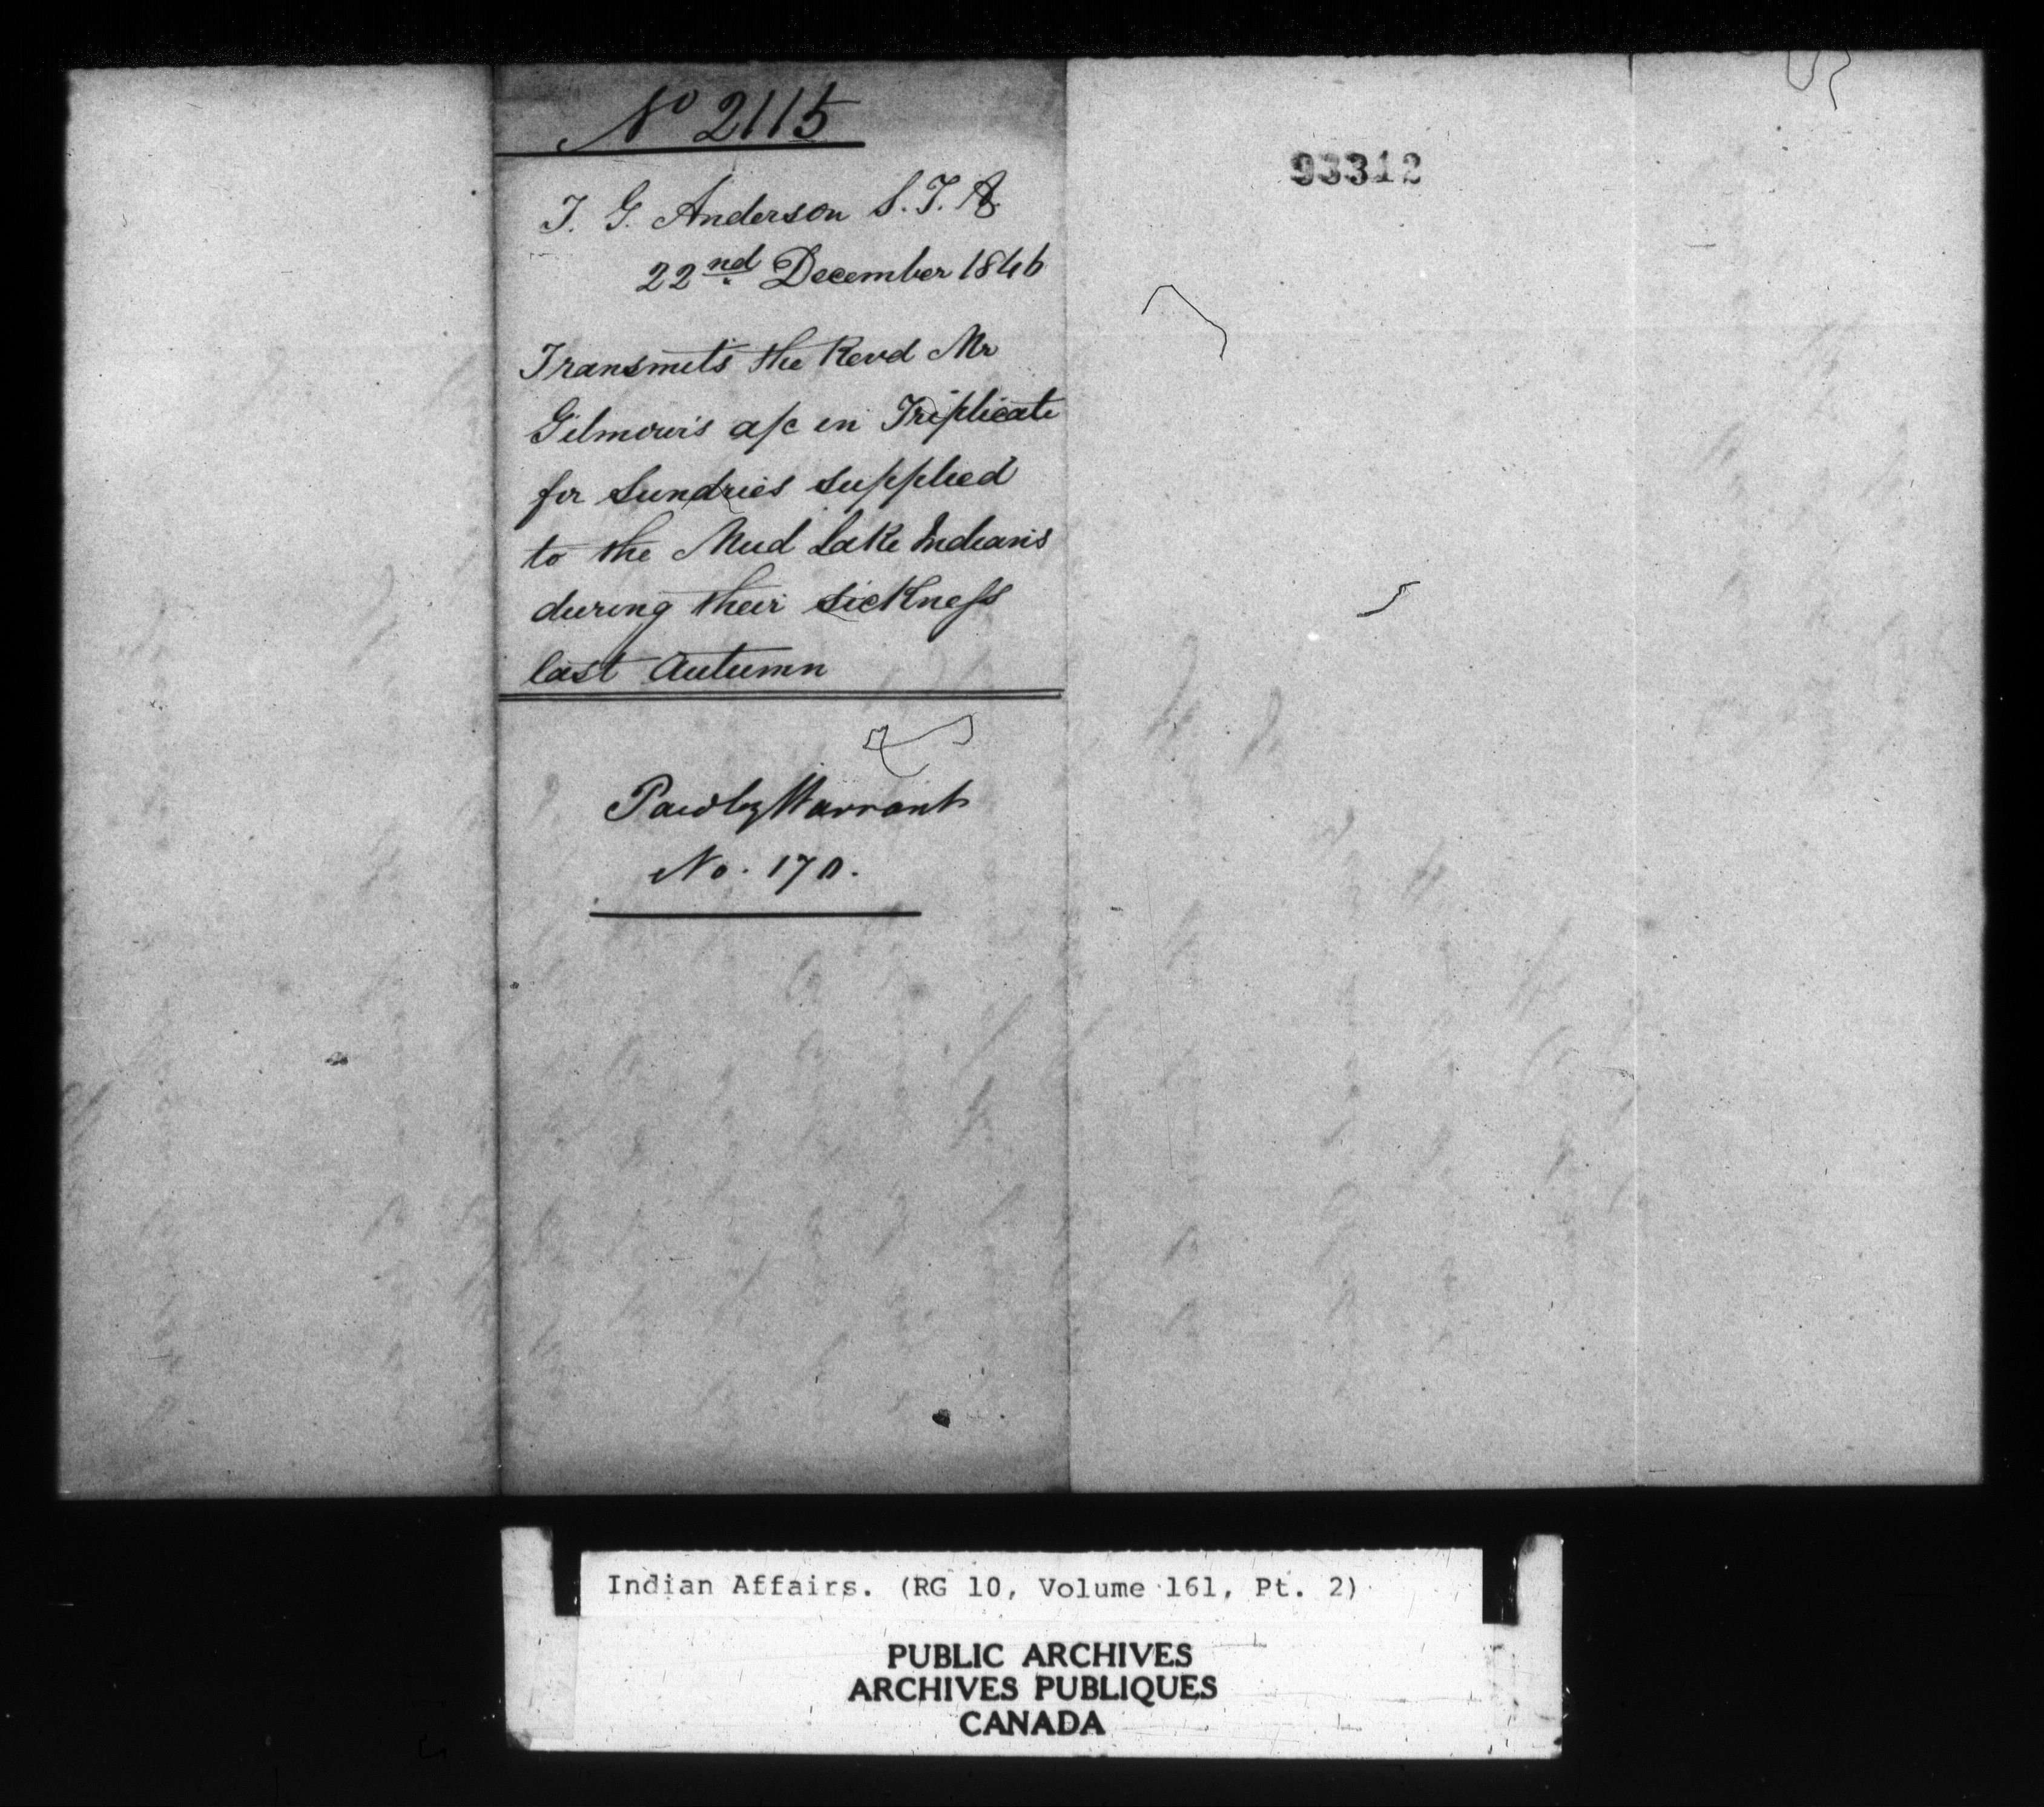 No 2115
T. G. Anderson S. I. A.
22nd December 1846
Transmits the Revd Mr
Gilmour's a/c in Triplicate
for Sundries supplied
to the Mud Lake Indians
during their sickness
last Autumn
Paid by Warrant
No. 170.
93312
Indian Affairs. (RG 10, Volume 161, Pt. 2)
PUBLIC ARCHIVES
ARCHIVES PUBLIQUES
CANADA